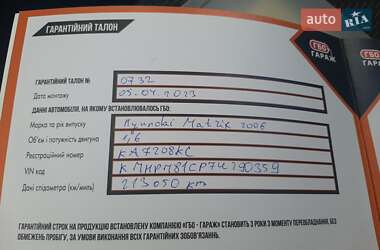 ГАРАНТІЙНИЙ ТАЛОН
auto RIA
ГБО
ГАРАЖ
ГАРАНТІЙНИЙ ТАЛОН № 0732
Дата монтажу 05.04.2023
ДАННІ АВТОМОБІЛЯ, НА ЯКОМУ ВСТАНОВЛЮВАЛОСЬ ГБО:
Марка та рік випуску Hyundai Matrix 2006
Об'єм і потужність двигуна 1,6
Реєстраційний номер КА7208КС
VIN код
Дані спідометра (км/миль) 213050 km
ГАРАНТІЙНИЙ СТРОК НА ПРОДУКЦІЮ ВСТАНОВЛЕНУ КОМПАНІЄЮ «ГБО - ГАРАЖ» СТАНОВИТЬ 3 РОКИ З МОМЕНТУ ПЕРЕОБЛАДНАННЯ, БЕЗ
ОБМЕЖЕНЬ ПРОБІГУ, ЗА УМОВИ ВИКОНАННЯ ВСІХ ГАРАНТІЙНИХ ЗОБОВ'ЯЗАНЬ.